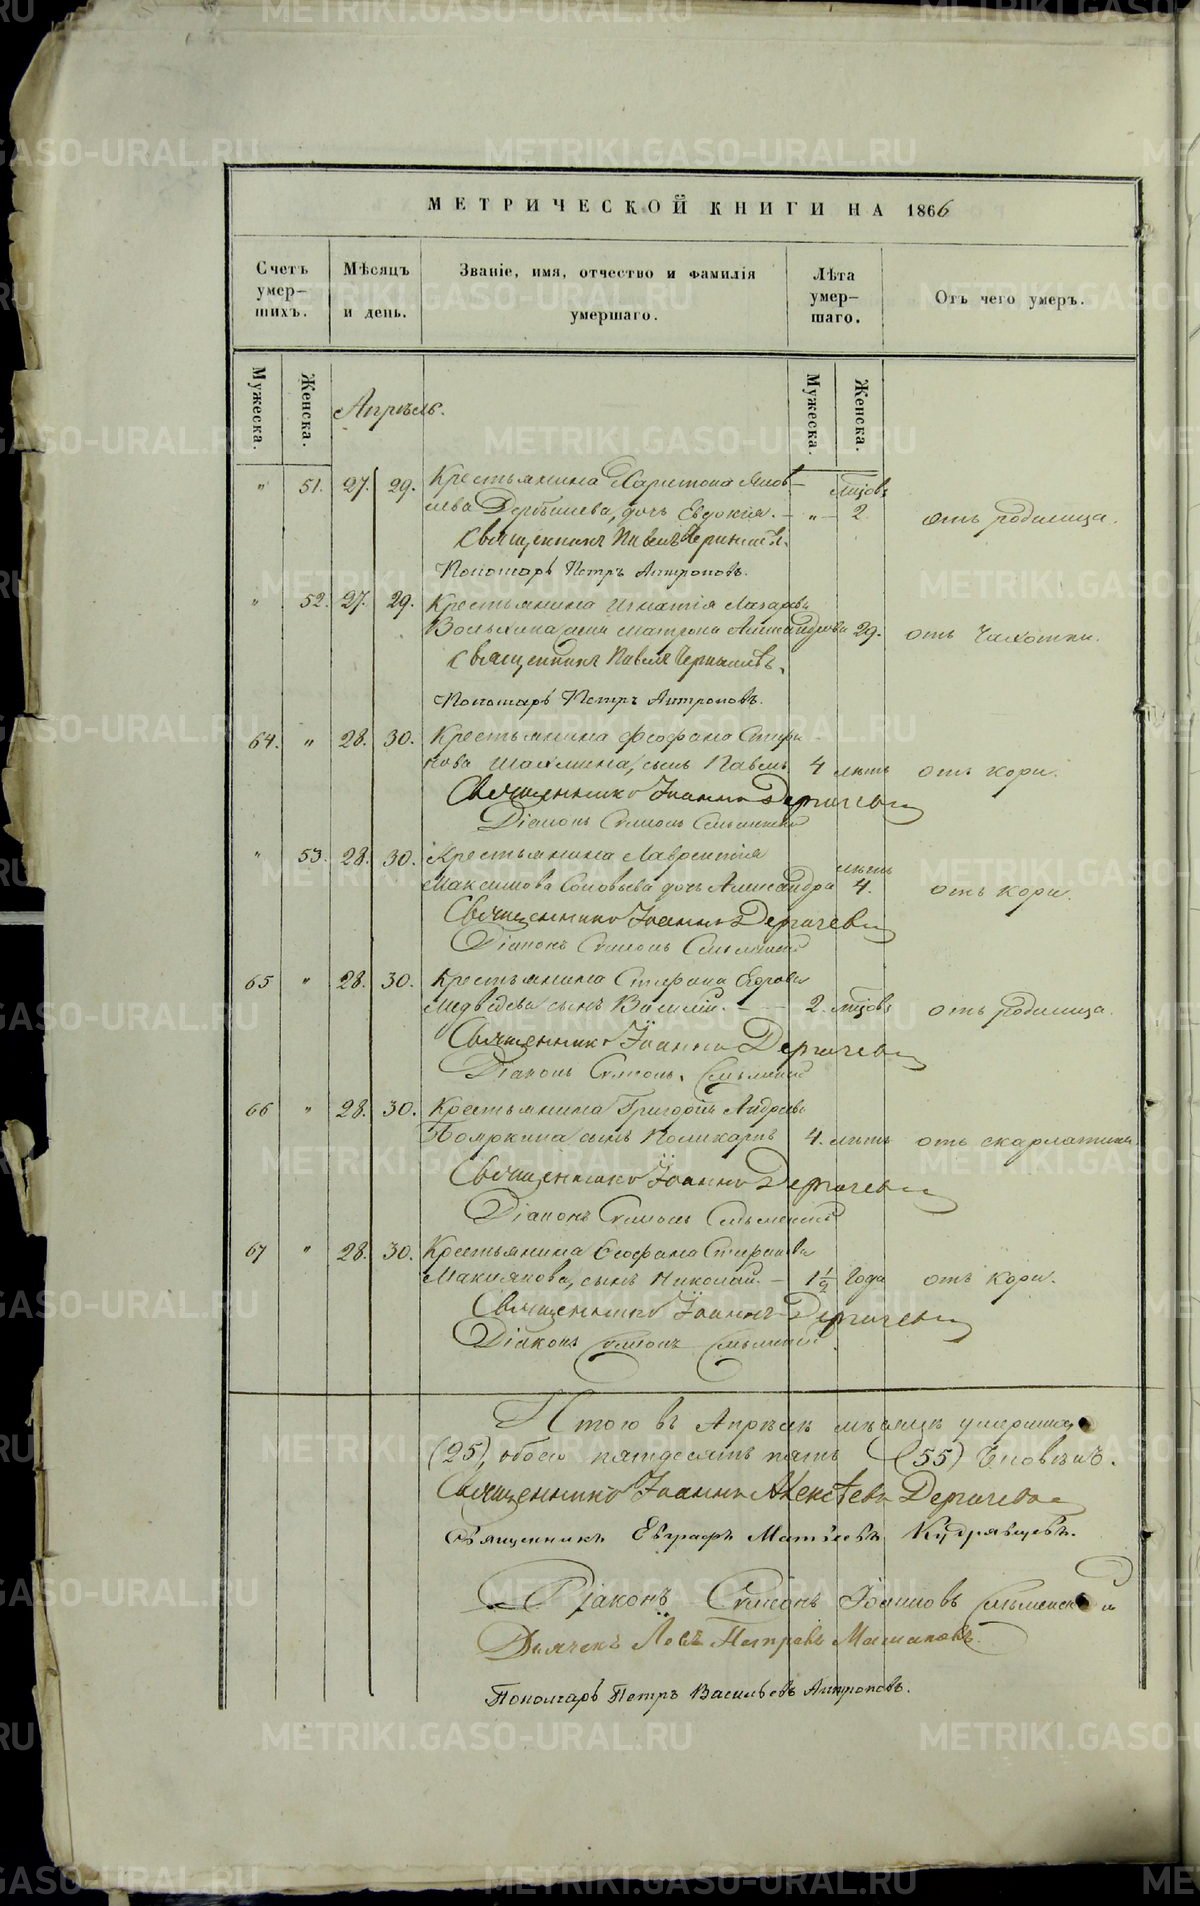 МЕТРИЧЕСКОЙ КНИГИ НА 1866
Счетъ умер-шихъ.
Мѣсяцъ и день.
Званіе, имя, отчество и фамилія умершаго.
Лѣта умер-шаго.
Отъ чего умеръ.
Мужеска.
Женска.
Апрѣль.
Мужеска.
Женска.
" 51. 27. 29. Крестьянина Харитона Яков-
лева дочь Евдокія. — " — мцовъ 2. отъ родимца.
Священникъ Павелъ Чернышевъ.
Пономарь Петръ Антроповъ.
" 52. 27. 29. Крестьянина Игнатія Лазарева
жена Матрона Александрова 29. отъ чахотки.
Священникъ Павелъ Чернышевъ.
Пономарь Петръ Антроповъ.
64. " 28. 30. Крестьянина Феофана Стефа-
нова сынъ Павелъ 4 лѣтъ отъ кори.
Священникъ Іоаннъ Дергачевъ
Діаконъ Симонъ
" 53. 28. 30. Крестьянина Лаврентія
Максимова Соловьева дочь Александра лѣтъ 4. отъ кори.
Священникъ Іоаннъ Дергачевъ
Діаконъ Симонъ
65 " 28. 30. Крестьянина Стефана Егорова
Медведева сынъ Василій. — 2. мцовъ отъ родимца.
Священникъ Іоаннъ Дергачевъ
Діаконъ Симонъ
66 " 28. 30. Крестьянина Григорія Андреева
Бояркина сынъ Поликарпъ 4. лѣтъ отъ скарлатины
Священникъ Іоаннъ Дергачевъ
Діаконъ Симонъ
67 " 28. 30. Крестьянина Феофана Стефанова
сынъ Николай. — 1½ года отъ кори.
Священникъ Іоаннъ Дергачевъ
Діаконъ Симонъ
Итого въ Апрѣлѣ мѣсяцѣ умершихъ
(25), обоего пятдесятъ пять (55) человѣкъ.
Священникъ Іоаннъ Алексѣевъ Дергачевъ
Священникъ Евграфъ Матвѣевъ Кудрявцевъ.
Діаконъ Симонъ Іоанновъ
Дьячекъ Левъ Петровъ
Пономарь Петръ Васильевъ Антроповъ.
METRIKI.GASO-URAL.RU